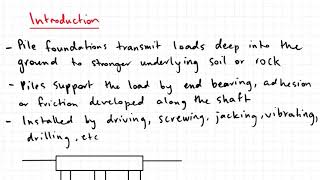 Introduction
- Pile foundations transmit loads deep into the
ground to stronger underlying soil or rock
- Piles support the load by end bearing, adhesion
or friction developed along the shaft
- Installed by driving, screwing, jacking, vibrating,
drilling, etc